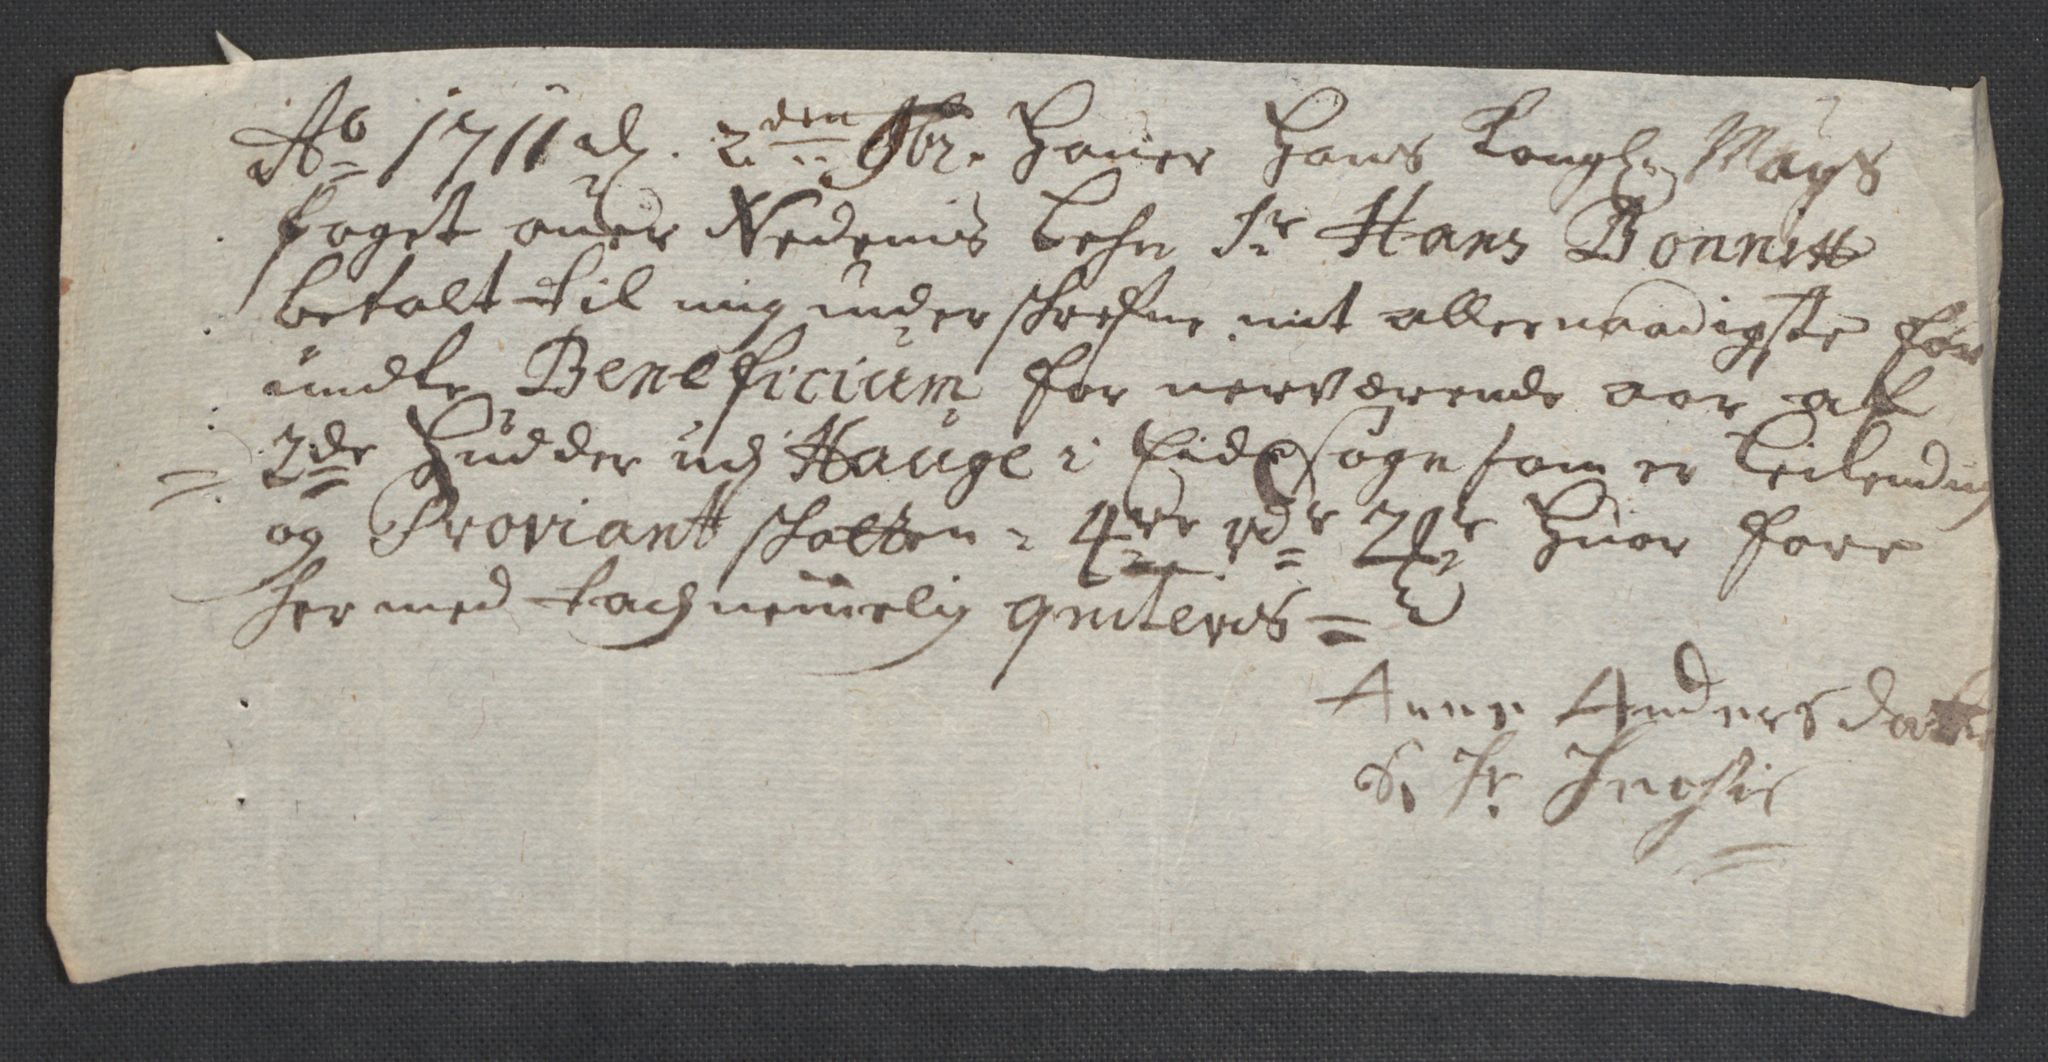 Ao 1711 d. 2den 9br. Hauer Hans Kongl. Mays
foget ouer Nedenis Lehn Sr Hans Bonnitz
betalt til mig underschrefne mit allernaadigste for
undte Beneficium for nerværende aar af
2de Hudder udj Hauge i Eidsogn som er Leilending
og Proviant skatten = 4re rdr 24s Huor fore
hermed tachnemelig qviteris =
Anne Andersdatter
S. Sr